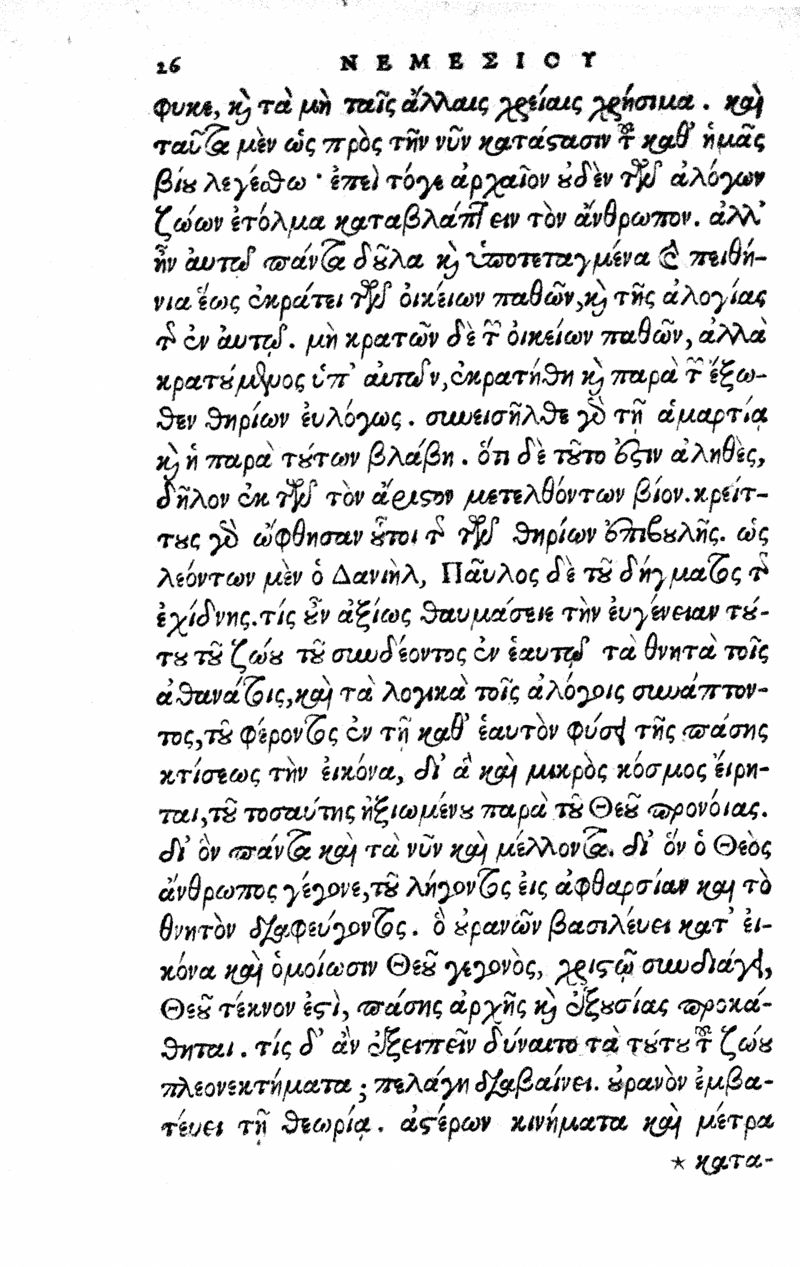 26 ΝΕΜΕΣΙΟΥ
φυκε, καὶ τὰ μὴ ταῖς ἄλλαις χρείαις χρήσιμα. καὶ
ταῦτα μὲν ὡς πρὸς τὴν νῦν κατάστασιν τοῦ καθ' ἡμᾶς
βίου λεγέσθω · ἐπεὶ τόγε ἀρχαῖον οὐδὲν τῶν ἀλόγων
ζώων ἐτόλμα καταβλάπτειν τὸν ἄνθρωπον. ἀλλ'
ἦν ἀυτῷ πάντα δοῦλα καὶ ὑποτεταγμένα καὶ πειθή-
νια ἕως ἐκράτει τῶν οἰκείων παθῶν, καὶ τῆς ἀλογίας
τῆς ἐν ἀυτῷ. μὴ κρατῶν δὲ τῶν οἰκείων παθῶν, ἀλλὰ
κρατούμενος ὑπ' αὐτῶν, ἐκρατήθη καὶ παρὰ τῶν ἔξω-
θεν θηρίων ἐυλόγως. συνεισῆλθε γὰρ τῇ ἁμαρτίᾳ
καὶ ἡ παρὰ τούτων βλάβη. ὅτι δὲ τοῦτο ἐστιν ἀληθὲς,
δῆλον ἐκ τῶν τὸν ἄριστον μετελθόντων βίον. κρείτ-
τους γὰρ ὤφθησαν οὗτοι τῆς τῶν θηρίων ἐπιβουλῆς. ὡς
λεόντων μὲν ὁ Δανιὴλ, Παῦλος δὲ τοῦ δήγματος τῆς
ἐχίδνης. τίς οὖν ἀξίως θαυμάσειε τὴν ἐυγένειαν τού-
του τοῦ ζώου τοῦ συνδέοντος ἐν ἑαυτῷ τὰ θνητὰ τοῖς
ἀθανάτοις, καὶ τὰ λογικὰ τοῖς ἀλόγοις συνάπτον-
τος, τοῦ φέροντος ἐν τῇ καθ' ἑαυτὸν φύσει τῆς πάσης
κτίσεως τὴν ἐικόνα, δι' ἃ καὶ μικρὸς κόσμος ἔιρη-
ται, τοῦ τοσαύτης ἠξιωμένου παρὰ τοῦ Θεοῦ προνόιας.
δι' ὃν πάντα καὶ τὰ νῦν καὶ μέλλοντα. δι' ὅν ὁ Θεὸς
ἄνθρωπος γέγονε, τοῦ λήγοντος ἐις ἀφθαρσίαν καὶ τὸ
θνητὸν διαφεύγοντος. ὃ οὐρανῶν βασιλέυει κατ' ἐι-
κόνα καὶ ὁμοίωσιν Θεοῦ γεγονὸς, χριστῷ συνδιάγει,
Θεοῦ τέκνον ἐστὶ, πάσης ἀρχῆς καὶ ἐξουσίας προκά-
θηται. τίς δ' ἂν ἐξειπεῖν δύναιτο τὰ τούτου τοῦ ζώου
πλεονεκτήματα; πελάγη διαβαίνει. οὐρανὸν ἐμβα-
τέυει τῇ θεωρίᾳ. ἀστέρων κινήματα καὶ μέτρα
* κατα-